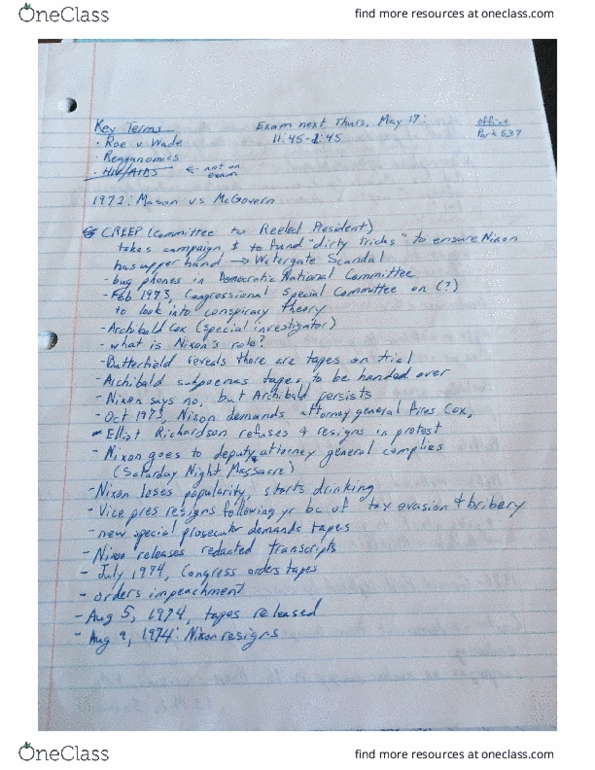 OneClass
find more resources at oneclass.com
Key Terms
Exam next Thurs, May 17:
11:45-1:45
office
Park 537
· Roe v. Wade
· Reagnomics
· HIV/AIDS ← not on exam
1972: Mason vs McGovern
CREEP (Committee to Reelect President)
takes campaign $ to fund "dirty tricks" to ensure Nixon
has upper hand → Watergate Scandal
- bug phones in Democratic National Committee
- Feb 1973, Congressional Special Committee on (?)
to look into conspiracy theory
- Archibald Cox (special investigator)
- what is Nixon's role?
- Butterfield reveals there are tapes on trial
- Archibald subpoenas tapes to be handed over
- Nixon says no, but Archibald persists
- Oct 1973, Nixon demands attorney general fires Cox,
- Elliot Richardson refuses & resigns in protest
- Nixon goes to deputy attorney general complies
(Saturday Night Massacre)
- Nixon loses popularity, starts drinking
- Vice pres resigns following yr bc of tax evasion & bribery
- new special prosecutor demands tapes
- Nixon releases redacted transcripts
- July 1974, Congress orders tapes
- orders impeachment
- Aug 5, 1974, tapes released
- Aug 9, 1974: Nixon resigns
OneClass
find more resources at oneclass.com